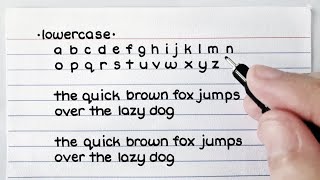 ·lowercase·
a b c d e f g h i j k l m n
o p q r s t u v w x y z
the quick brown fox jumps
over the lazy dog
the quick brown fox jumps
over the lazy dog